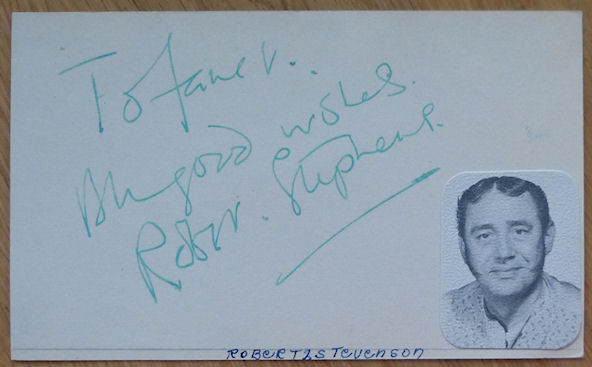 To Janet.
All good wishes.
Robert. Stephens.
ROBERT L STEVENSON